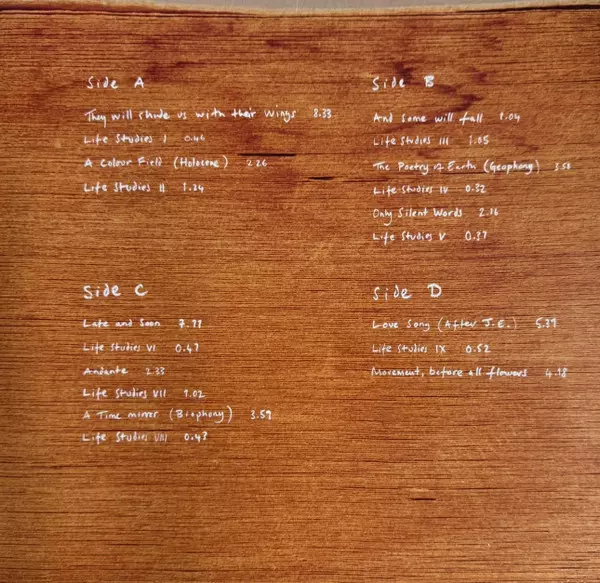 Side A
They will shade us with their wings 8.33
Life Studies I 0.46
A Colour Field (Holocene) 2.26
Life Studies II 1.24
Side B
And some will fall 1.04
Life Studies III 1.05
The Poetry of Earth (Geophony) 3.58
Life Studies IV 0.32
Only Silent Words 2.16
Life Studies V 0.37
Side C
Late and Soon
Life Studies VI 0.47
Andante 2.33
Life Studies VII 1.02
A Time mirror (Biophony) 3.59
Life Studies VIII 0.43
Side D
Love Song (After J.E.) 5.39
Life Studies IX 0.52
Movement, before all flowers 4.18